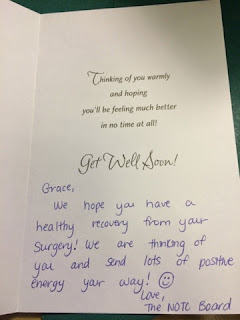 Thinking of you warmly
and hoping
you'll be feeling much better
in no time at all!
Get Well Soon!
Grace,
We hope you have a
healthy recovery from your
surgery! We are thinking of
you and send lots of positive
energy your way! ☺
Love,
The NOTC Board